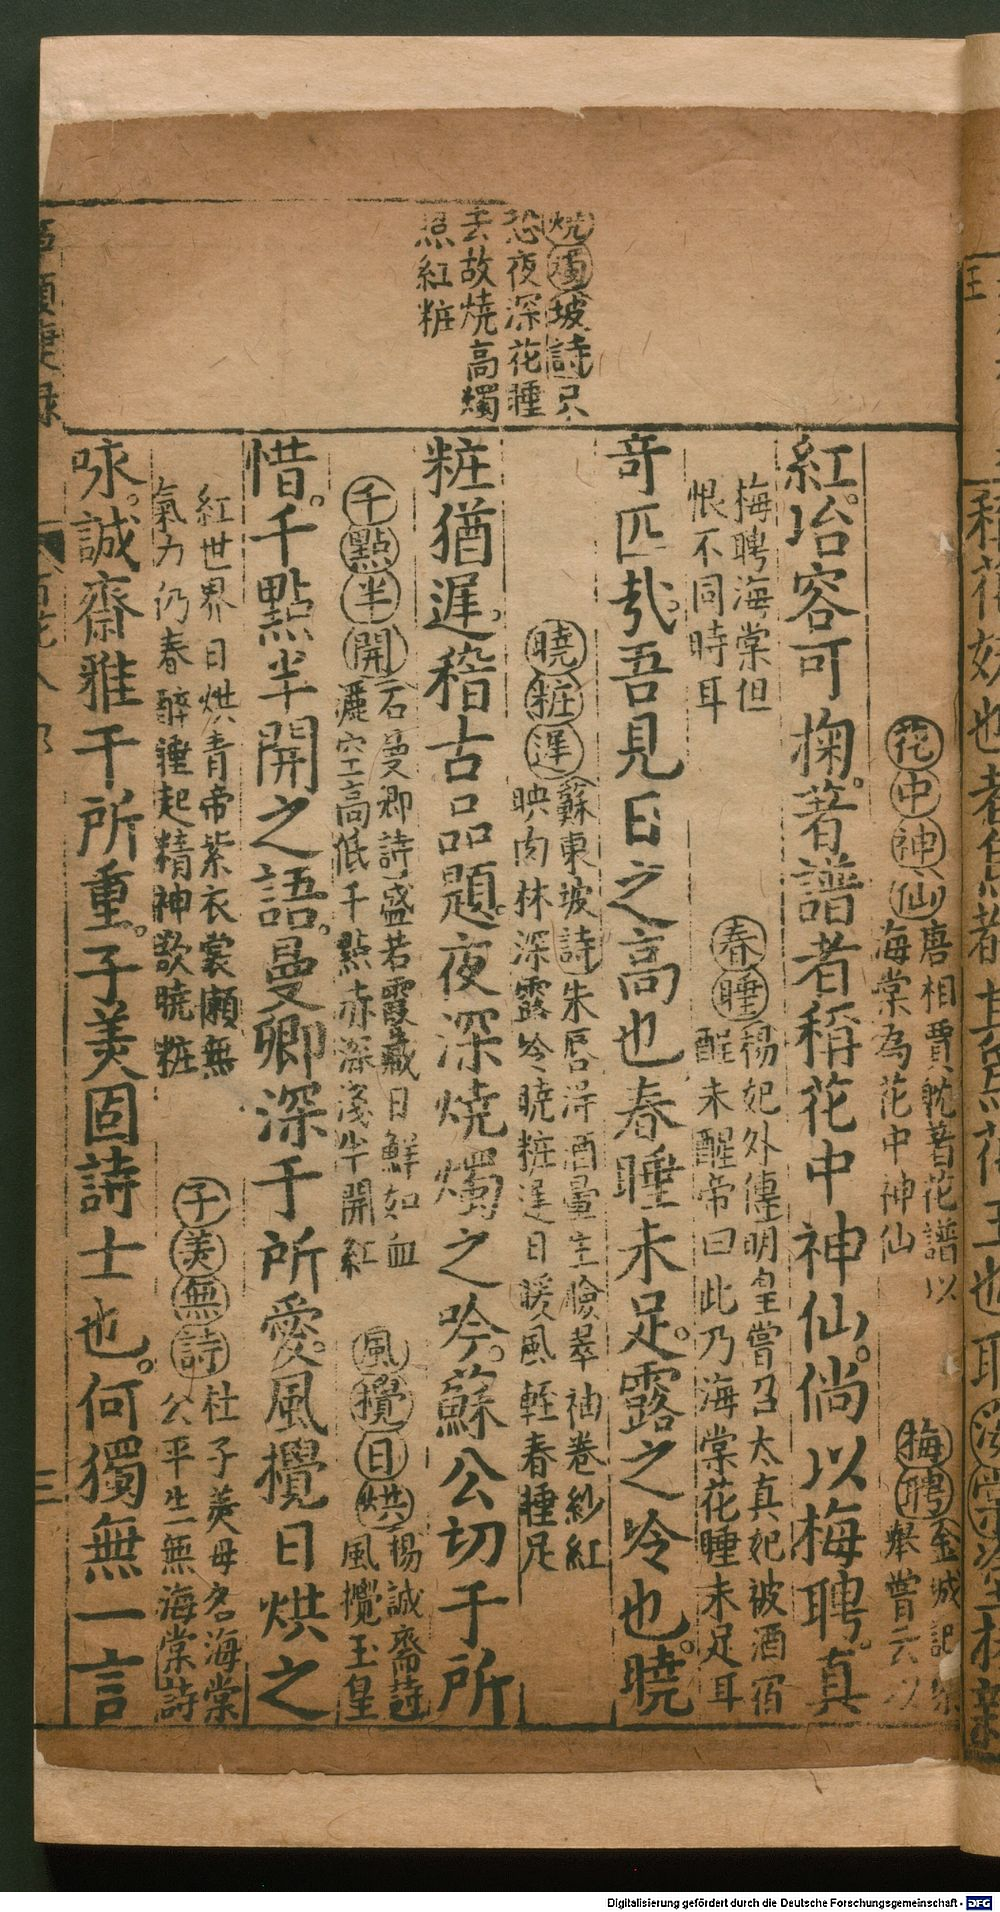 燒燭坡詩只
恐夜深花睡
去故燒高燭
照紅粧
花中神仙唐相賈耽著花譜以
海棠為花中神仙
梅聘金城記
舉嘗云以
紅。冶容可掬。著譜者稱花中神仙。倘以梅聘。真
梅聘海棠但
恨不同時耳
春睡楊妃外傳明皇嘗召太真妃被酒宿
酲未醒帝曰此乃海棠花睡未足耳
奇匹哉。吾見日之高也春睡未足。露之冷也。曉
曉粧遲蘇東坡詩朱唇得酒暈生臉翠袖卷紗紅
映肉林深露冷曉粧遲日暖風輕春睡足
粧猶遲。稽古品題。夜深燒燭之吟。蘇公切于所
千點半開石曼卿詩盛若霞藏日鮮如血
灑空高低千點赤深淺半開紅
風攪日烘楊誠齋詩
風攪玉皇
惜。千點半開之語。曼卿深于所愛。風攪日烘之
紅世界日烘青帝紫衣裳嬾無
氣力仍春醉睡起精神欲曉粧
子美無詩杜子美母名海棠
公平生無海棠詩
咏。誠齋雅于所重。子美固詩士也。何獨無一言
三
Digitalisierung gefördert durch die Deutsche Forschungsgemeinschaft - DFG